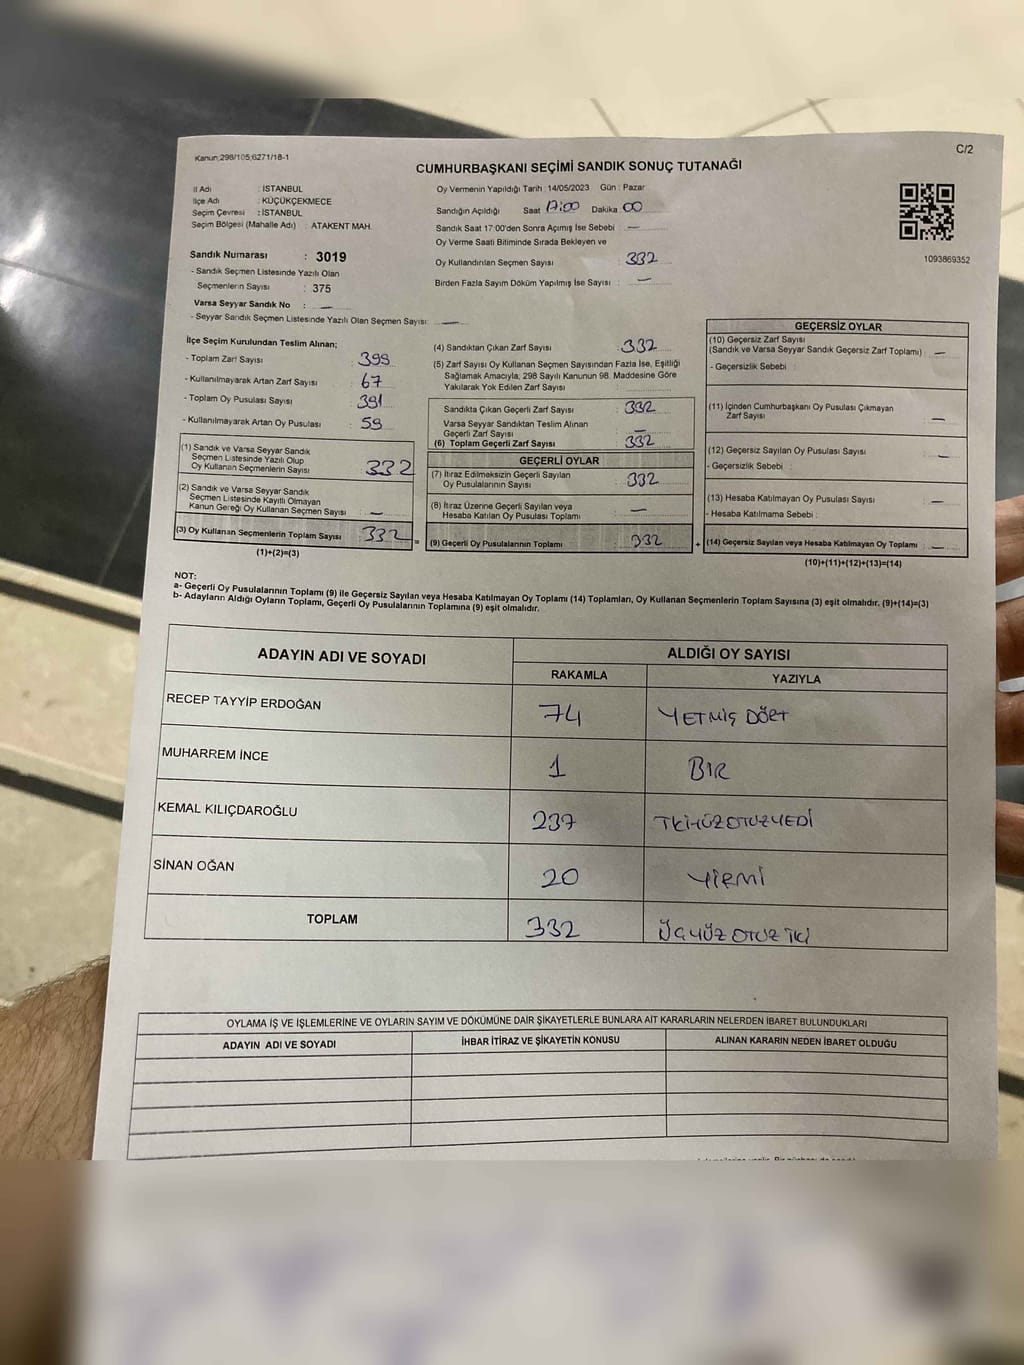 Kanun;298/105;6271/18-1
C/2
CUMHURBAŞKANI SEÇİMİ SANDIK SONUÇ TUTANAĞI
İl Adı : İSTANBUL
İlçe Adı : KÜÇÜKÇEKMECE
Seçim Çevresi : İSTANBUL
Seçim Bölgesi (Mahalle Adı) : ATAKENT MAH.
Sandık Numarası : 3019
- Sandık Seçmen Listesinde Yazılı Olan
Seçmenlerin Sayısı : 375
Varsa Seyyar Sandık No : —
- Seyyar Sandık Seçmen Listesinde Yazılı Olan Seçmen Sayısı: —
Oy Vermenin Yapıldığı Tarih : 14/05/2023 Gün : Pazar
Sandığın Açıldığı Saat 17:00 Dakika 00
Sandık Saat 17:00'den Sonra Açımış İse Sebebi : —
Oy Verme Saati Bitiminde Sırada Bekleyen ve
Oy Kullandırılan Seçmen Sayısı : 332
Birden Fazla Sayım Döküm Yapılmış İse Sayısı : —
1093869352
İlçe Seçim Kurulundan Teslim Alınan;
- Toplam Zarf Sayısı : 399
- Kullanılmayarak Artan Zarf Sayısı : 67
- Toplam Oy Pusulası Sayısı : 391
- Kullanılmayarak Artan Oy Pusulası : 59
(1) Sandık ve Varsa Seyyar Sandık
Seçmen Listesinde Yazılı Olup
Oy Kullanan Seçmenlerin Sayısı : 332
(2) Sandık ve Varsa Seyyar Sandık
Seçmen Listesinde Kayıtlı Olmayan
Kanun Gereği Oy Kullanan Seçmen Sayısı : —
(3) Oy Kullanan Seçmenlerin Toplam Sayısı : 332
(1)+(2)=(3)
(4) Sandıktan Çıkan Zarf Sayısı : 332
(5) Zarf Sayısı Oy Kullanan Seçmen Sayısından Fazla İse, Eşitliği
Sağlamak Amacıyla; 298 Sayılı Kanunun 98. Maddesine Göre
Yakılarak Yok Edilen Zarf Sayısı
Sandıkta Çıkan Geçerli Zarf Sayısı : 332
Varsa Seyyar Sandıktan Teslim Alınan
Geçerli Zarf Sayısı : —
(6) Toplam Geçerli Zarf Sayısı : 332
GEÇERLİ OYLAR
(7) İtiraz Edilmeksizin Geçerli Sayılan
Oy Pusulalarının Sayısı : 332
(8) İtiraz Üzerine Geçerli Sayılan veya
Hesaba Katılan Oy Pusulası Toplamı : —
= (9) Geçerli Oy Pusulalarının Toplamı : 332
GEÇERSİZ OYLAR
(10) Geçersiz Zarf Sayısı
(Sandık ve Varsa Seyyar Sandık Geçersiz Zarf Toplamı) : —
- Geçersizlik Sebebi :
(11) İçinden Cumhurbaşkanı Oy Pusulası Çıkmayan
Zarf Sayısı : —
(12) Geçersiz Sayılan Oy Pusulası Sayısı : —
- Geçersizlik Sebebi :
(13) Hesaba Katılmayan Oy Pusulası Sayısı : —
- Hesaba Katılmama Sebebi :
+ (14) Geçersiz Sayılan veya Hesaba Katılmayan Oy Toplamı : —
(10)+(11)+(12)+(13)=(14)
NOT:
a- Geçerli Oy Pusulalarının Toplamı (9) ile Geçersiz Sayılan veya Hesaba Katılmayan Oy Toplamı (14) Toplamları, Oy Kullanan Seçmenlerin Toplam Sayısına (3) eşit olmalıdır. (9)+(14)=(3)
b- Adayların Aldığı Oyların Toplamı, Geçerli Oy Pusulalarının Toplamına (9) eşit olmalıdır.
ADAYIN ADI VE SOYADI ALDIĞI OY SAYISI
RAKAMLA YAZIYLA
RECEP TAYYİP ERDOĞAN 74 YETMİŞ DÖRT
MUHARREM İNCE 1 BİR
KEMAL KILIÇDAROĞLU 237 İKİYÜZOTUZYEDİ
SİNAN OĞAN 20 YİRMİ
TOPLAM 332 ÜÇYÜZ OTUZ İKİ
OYLAMA İŞ VE İŞLEMLERİNE VE OYLARIN SAYIM VE DÖKÜMÜNE DAİR ŞİKAYETLERLE BUNLARA AİT KARARLARIN NELERDEN İBARET BULUNDUKLARI
ADAYIN ADI VE SOYADI İHBAR İTİRAZ VE ŞİKAYETİN KONUSU ALINAN KARARIN NEDEN İBARET OLDUĞU